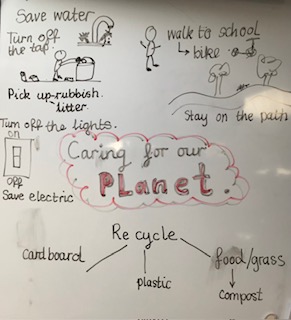 Save water
Turn off
the tap.
walk to school
bike
Pick up rubbish.
litter.
Stay on the path
Turn off the lights.
on
off
Save electric
Caring for our
PLanet.
Recycle
cardboard
plastic
food/grass
compost